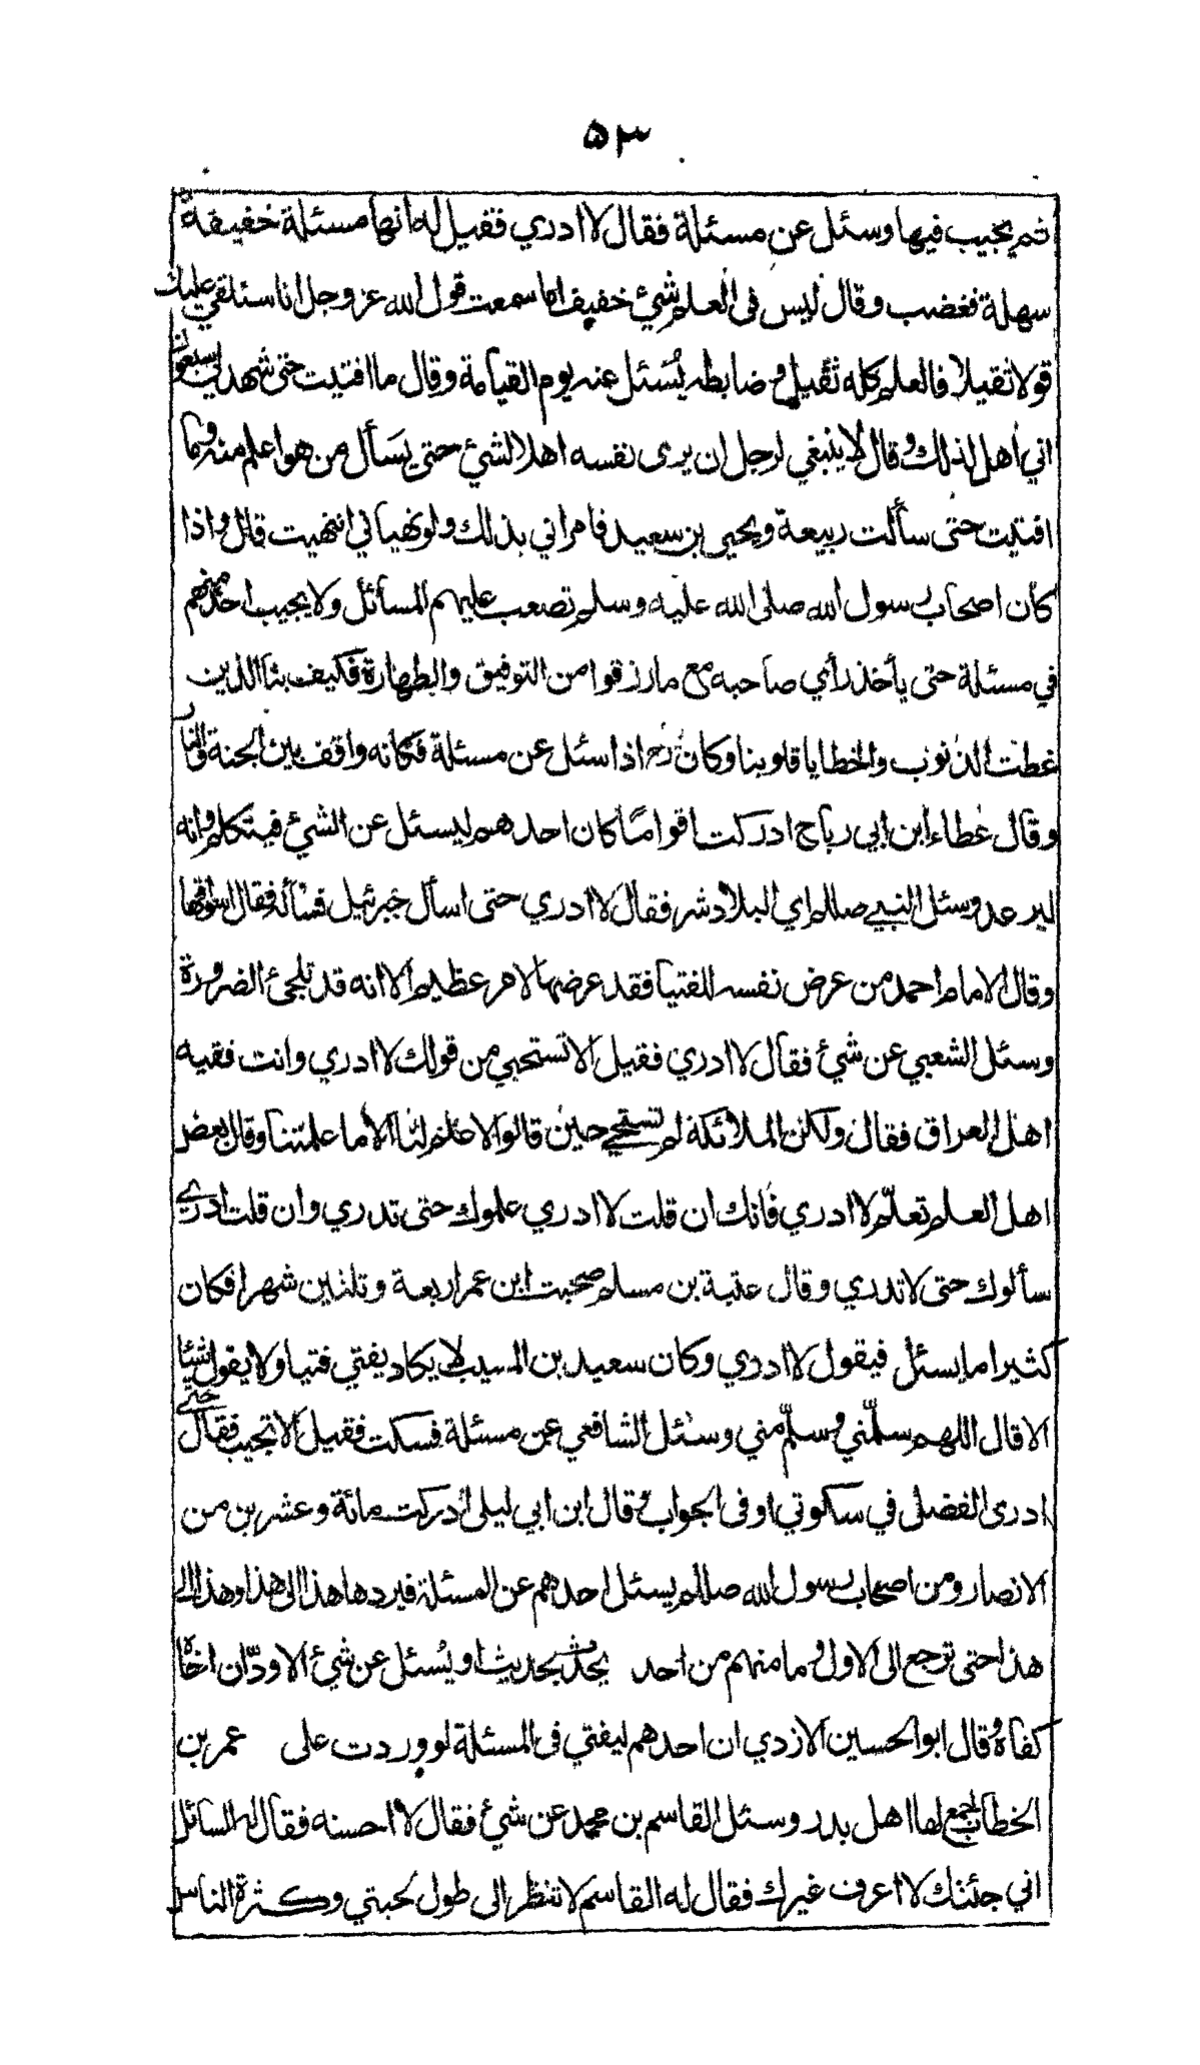 ۵۳
ثم يجيب فيها وسئل عن مسئلة فقال لا ادري فقيل له انها مسئلة خفيفة
سهلة فغضب وقال ليس فى العلم شئ خفيف اما سمعت قول الله عز وجل انا سنلقي عليك
قولا ثقيلا فالعلم كله ثقيل و ضابطه يُسئل عنه يوم القيامة وقال ما افتيت حتى شهد لي سبعون
اني اهل لذلك وقال لا ينبغي لرجل ان يرى نفسه اهلا لشئ حتى يسأل من هو اعلم منه وما
افتيت حتى سألت ربيعة ويحيى بن سعيد فامراني بذلك ولو نهياني انتهيت قال واذا
كان اصحاب رسول الله صلى الله عليه وسلم تصعب عليهم المسائل ولا يجيب احد منهم
في مسئلة حتى يأخذ رأي صاحبه مع ما رزقوا من التوفيق والطهارة فكيف بنا الذين
غطت الذنوب والخطايا قلوبنا وكان رح اذا سئل عن مسئلة فكانه واقف بين الجنة والنار
وقال عطاء ابن ابي رباح ادركت اقواما كان احدهم ليسئل عن الشئ فيتكلم وانه
ليرعد وسئل النبي صللم اي البلاد شر فقال لا ادري حتى اسأل جبرئيل فسأله فقال اسواقها
وقال الامام احمد من عرض نفسه للفتيا فقد عرضها لامر عظيم الا انه قد تلجئ الضرورة
وسئل الشعبي عن شئ فقال لا ادري فقيل الا تستحيي من قولك لا ادري وانت فقيه
اهل العراق فقال ولكن الملائكة لم تستحي حين قالوا لا علم لنا الا ما علمتنا وقال بعض
اهل العلم تعلّم لا ادري فانك ان قلت لا ادري علموك حتى تدري وان قلت ادري
سألوك حتى لا تدري وقال عتبة بن مسلم صحبت ابن عمر اربعة وثلثين شهرا فكان
كثيرا ما يسئل فيقول لا ادري وكان سعيد بن المسيب لا يكاد يفتي فتيا ولا يقول شيئا
الا قال اللهم سلّمني وسلّم مني وسئل الشافعي عن مسئلة فسكت فقيل الا تجيب فقال حتى
ادرى الفضل في سكوتي او فى الجواب وقال ابن ابي ليلى ادركت مائة وعشرين من
الانصار ومن اصحاب رسول الله صللم يسئل احدهم عن المسئلة فيردها هذا الى هذا وهذا الى
هذا حتى ترجع الى الاول وما منهم من احد يحدّث بحديث او يُسئل عن شئ الا ودّ ان اخاه
كفاه وقال ابو الحسين الازدي ان احدهم ليفتي فى المسئلة لو وردت على عمر بن
الخطاب لجمع لها اهل بدر وسئل القاسم بن محمد عن شئ فقال لا احسنه فقال له السائل
اني جئتك لا اعرف غيرك فقال له القاسم لا تنظر الى طول لحيتي وكثرة الناس